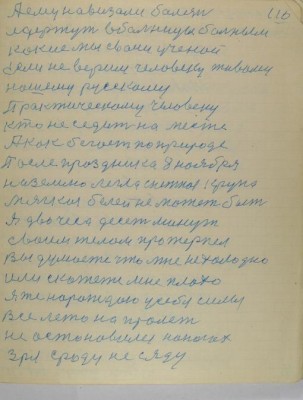 110
А ему навизали болезн
и держут в болницы болным
какие мы свани ученой
если не верим человеку живому
нашему русскому
Практическому человеку
кто не седит на месте
А как бегает по природе
После праздника 8 ноября
на землю легла снежная крупа
мяхкая белей не может быт
Я два чеса десет минут
своем телом протерпел
Вы думаете что мне не холодно
или скажете мне плохо
Я же нарождаю у себя силы
Все лето на пролет
не остановился на ногах
зря сроду не сяду